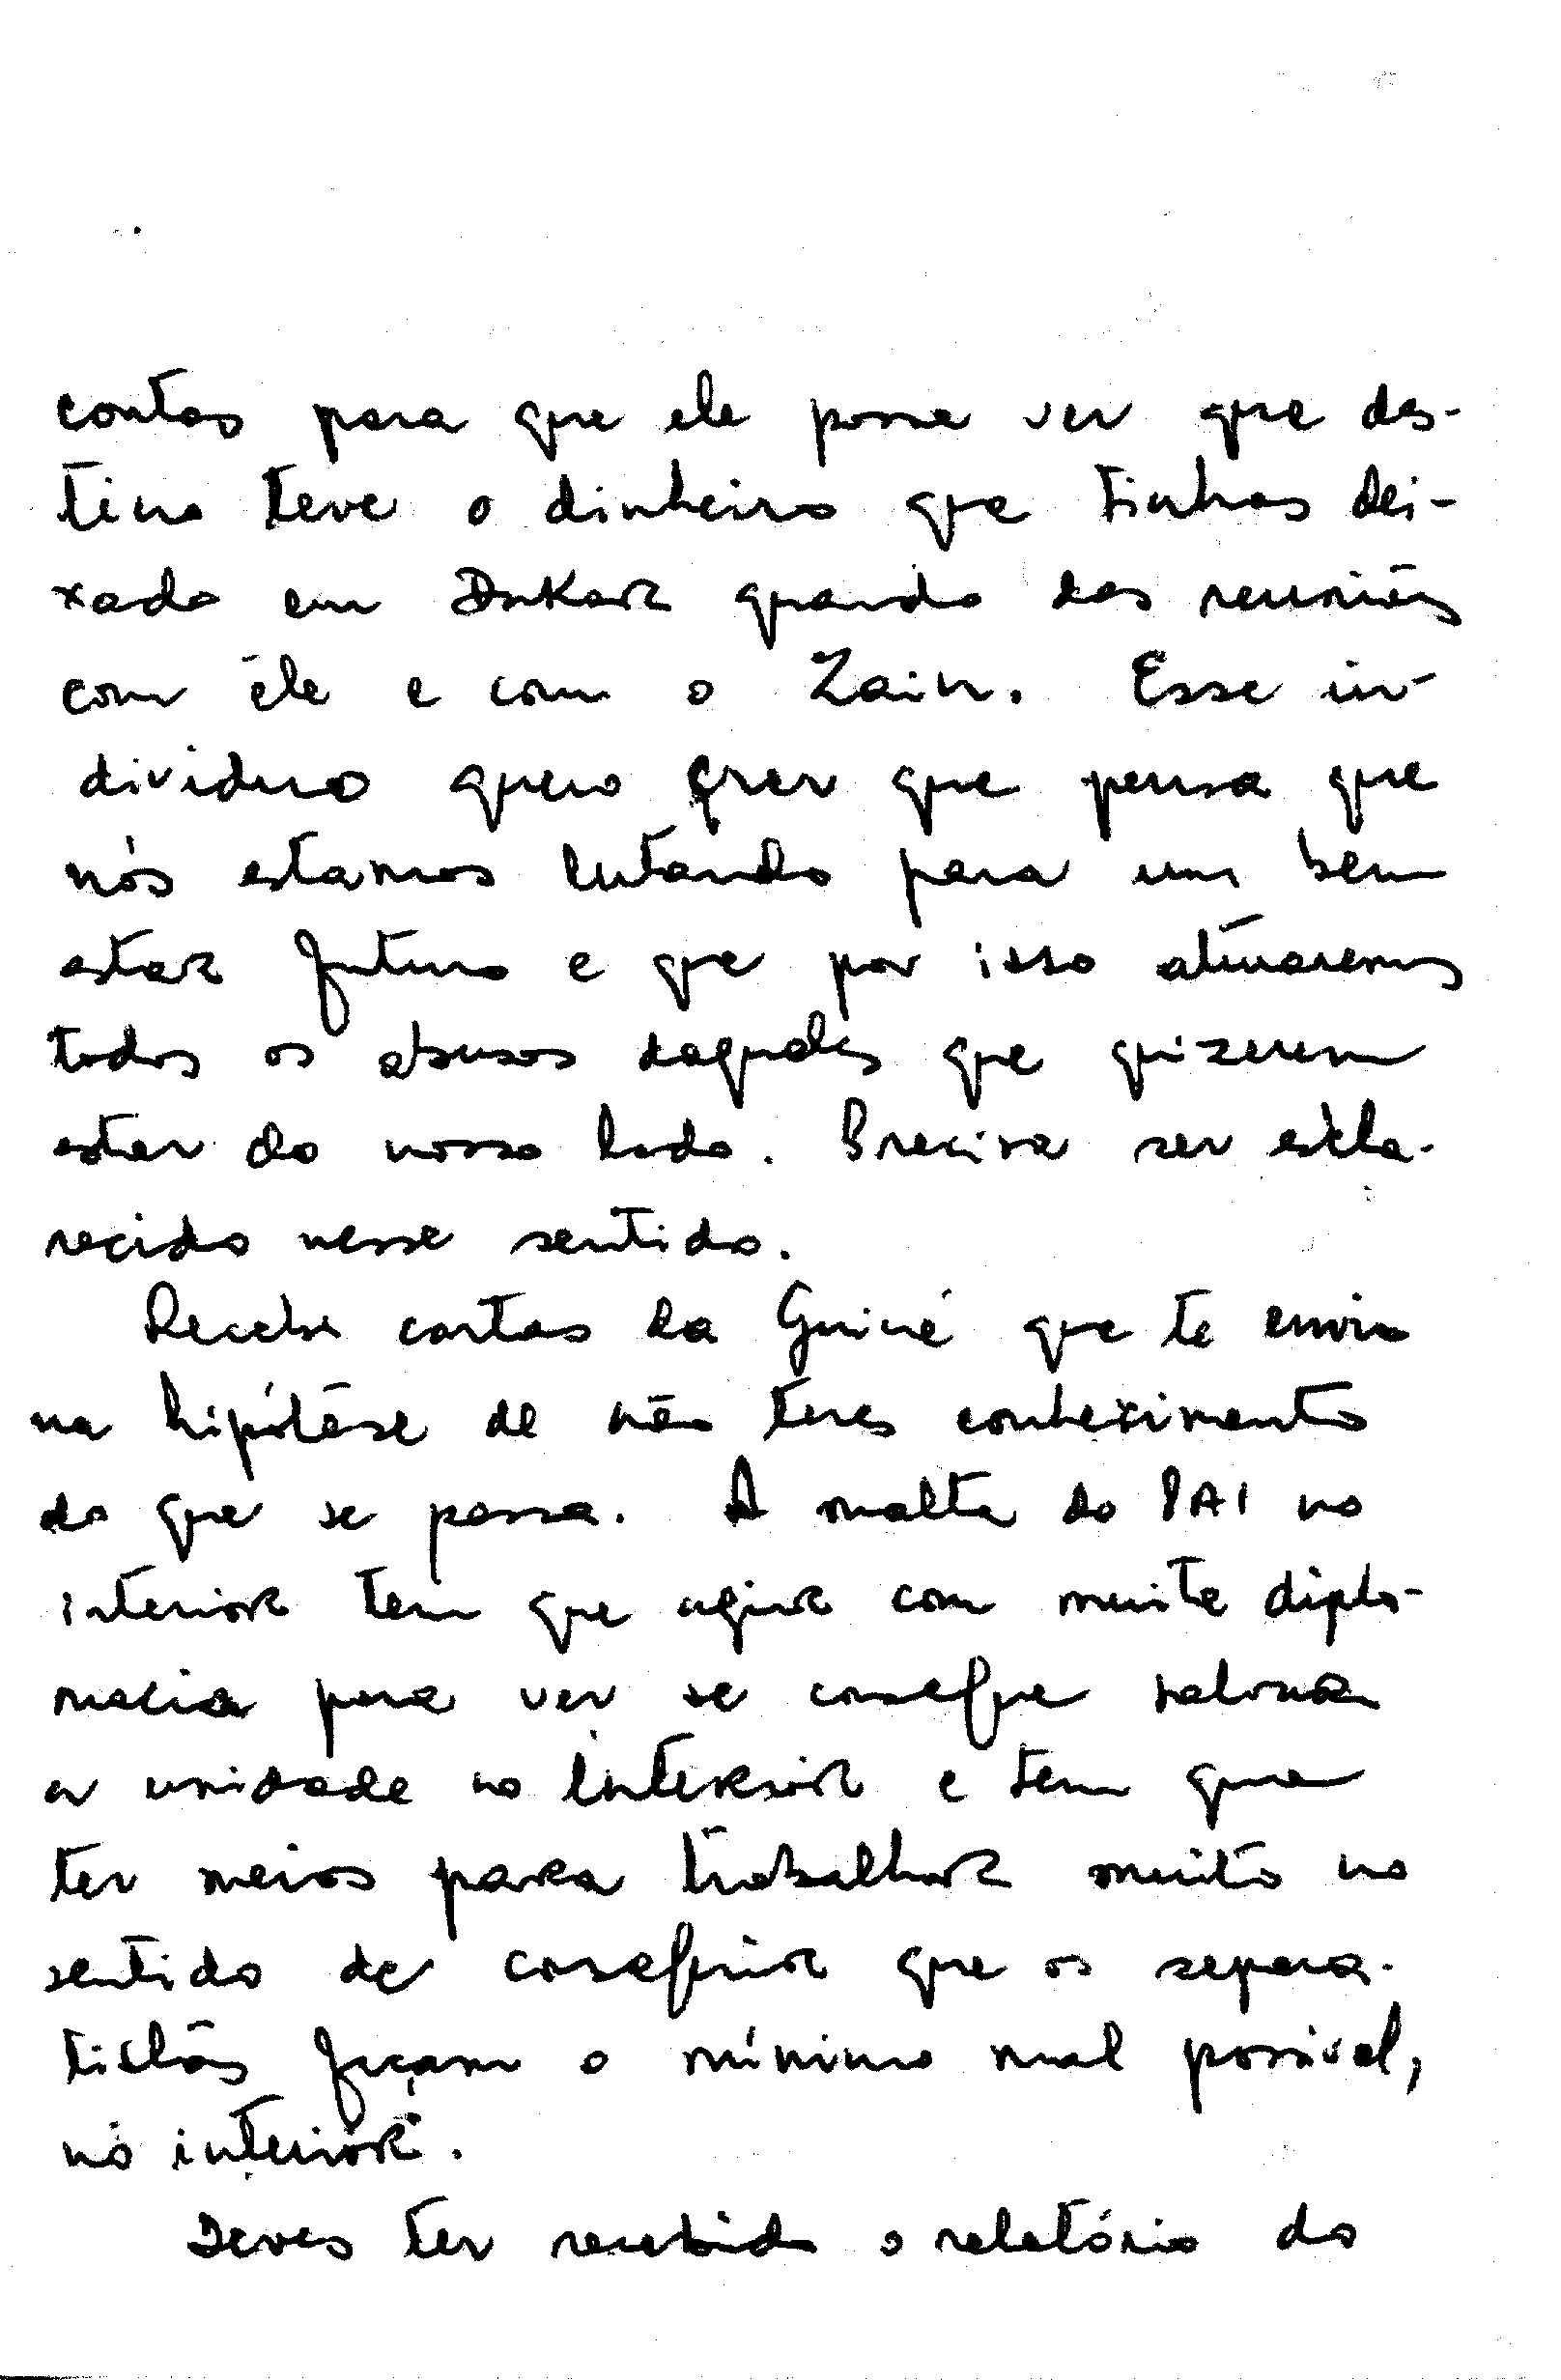 contas para que ele possa ver que des-
tino teve o dinheiro que tinhas dei-
xado em Dakar quando das reuniões
com êle e com o Zain. Esse in-
dividuo quero crer que pensa que
nós estamos lutando para um bem
estar futuro e que por isso aturaremos
todos os abusos daqueles que quizerem
estar do nosso lado. Precisa ser escla-
recido nesse sentido.
Recebi cartas da Guiné que te envio
na hipótese de não teres conhecimento
do que se passa. A malta do PAI no
interior tem que agir com muita diplo-
macia para ver se consegue salvar
a unidade no interior e tem que
ter meios para trabalhar muito no
sentido de conseguir que os separa-
tistas façam o mínimo mal possível,
no interior.
Deves ter recebido o relatório do